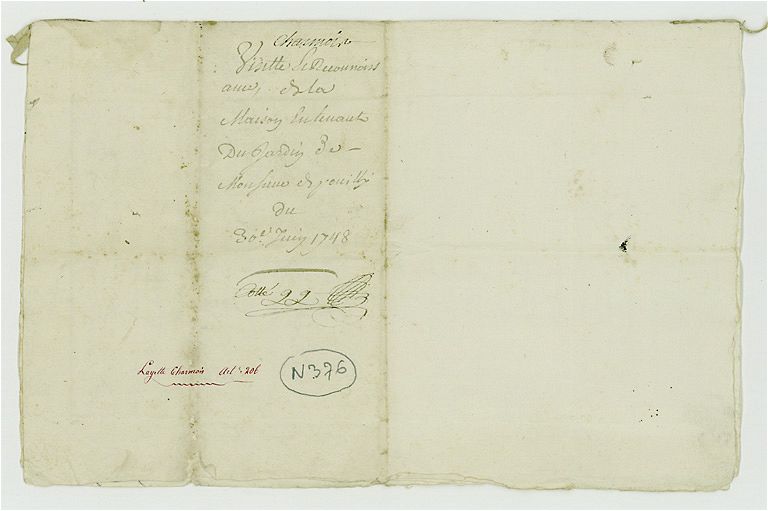 Charmois
Visitte Et Reconnoiss
ance, de la
Maison Enlevant
Du Jardin De
Monsieur de pouilly
du
30.e Juin 1748
Cotté 22
Layette Charmois Art. 206
N376